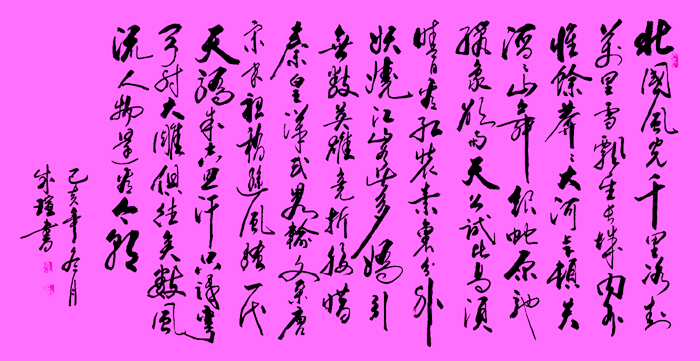 北國風光千里冰封
萬里雪飄望長城內外
惟餘莽〻大河上下頓失
滔〻山舞銀蛇原馳
蠟象欲與天公試比高須
晴日看紅裝素裹分外
妖嬈江山如此多嬌引
無數英雄競折腰惜
秦皇漢武略輸文采唐
宗宋祖稍遜風騷一代
天驕成吉思汗只識彎
弓射大雕俱往矣數風
流人物還看今朝
己亥年冬月
書